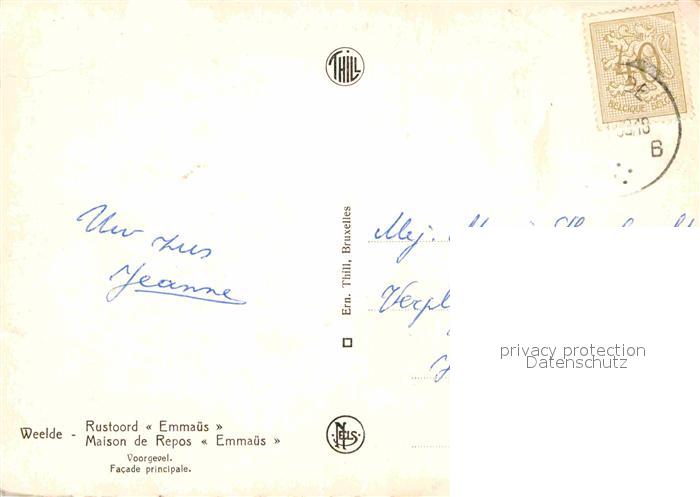 THILL
40
BELGIQUE BELGIË
B
Uw zus
Jeanne
Ern. Thill, Bruxelles
Mej.
privacy protection
Datenschutz
NELS
Weelde - Rustoord « Emmaüs »
Maison de Repos « Emmaüs »
Voorgevel.
Façade principale.